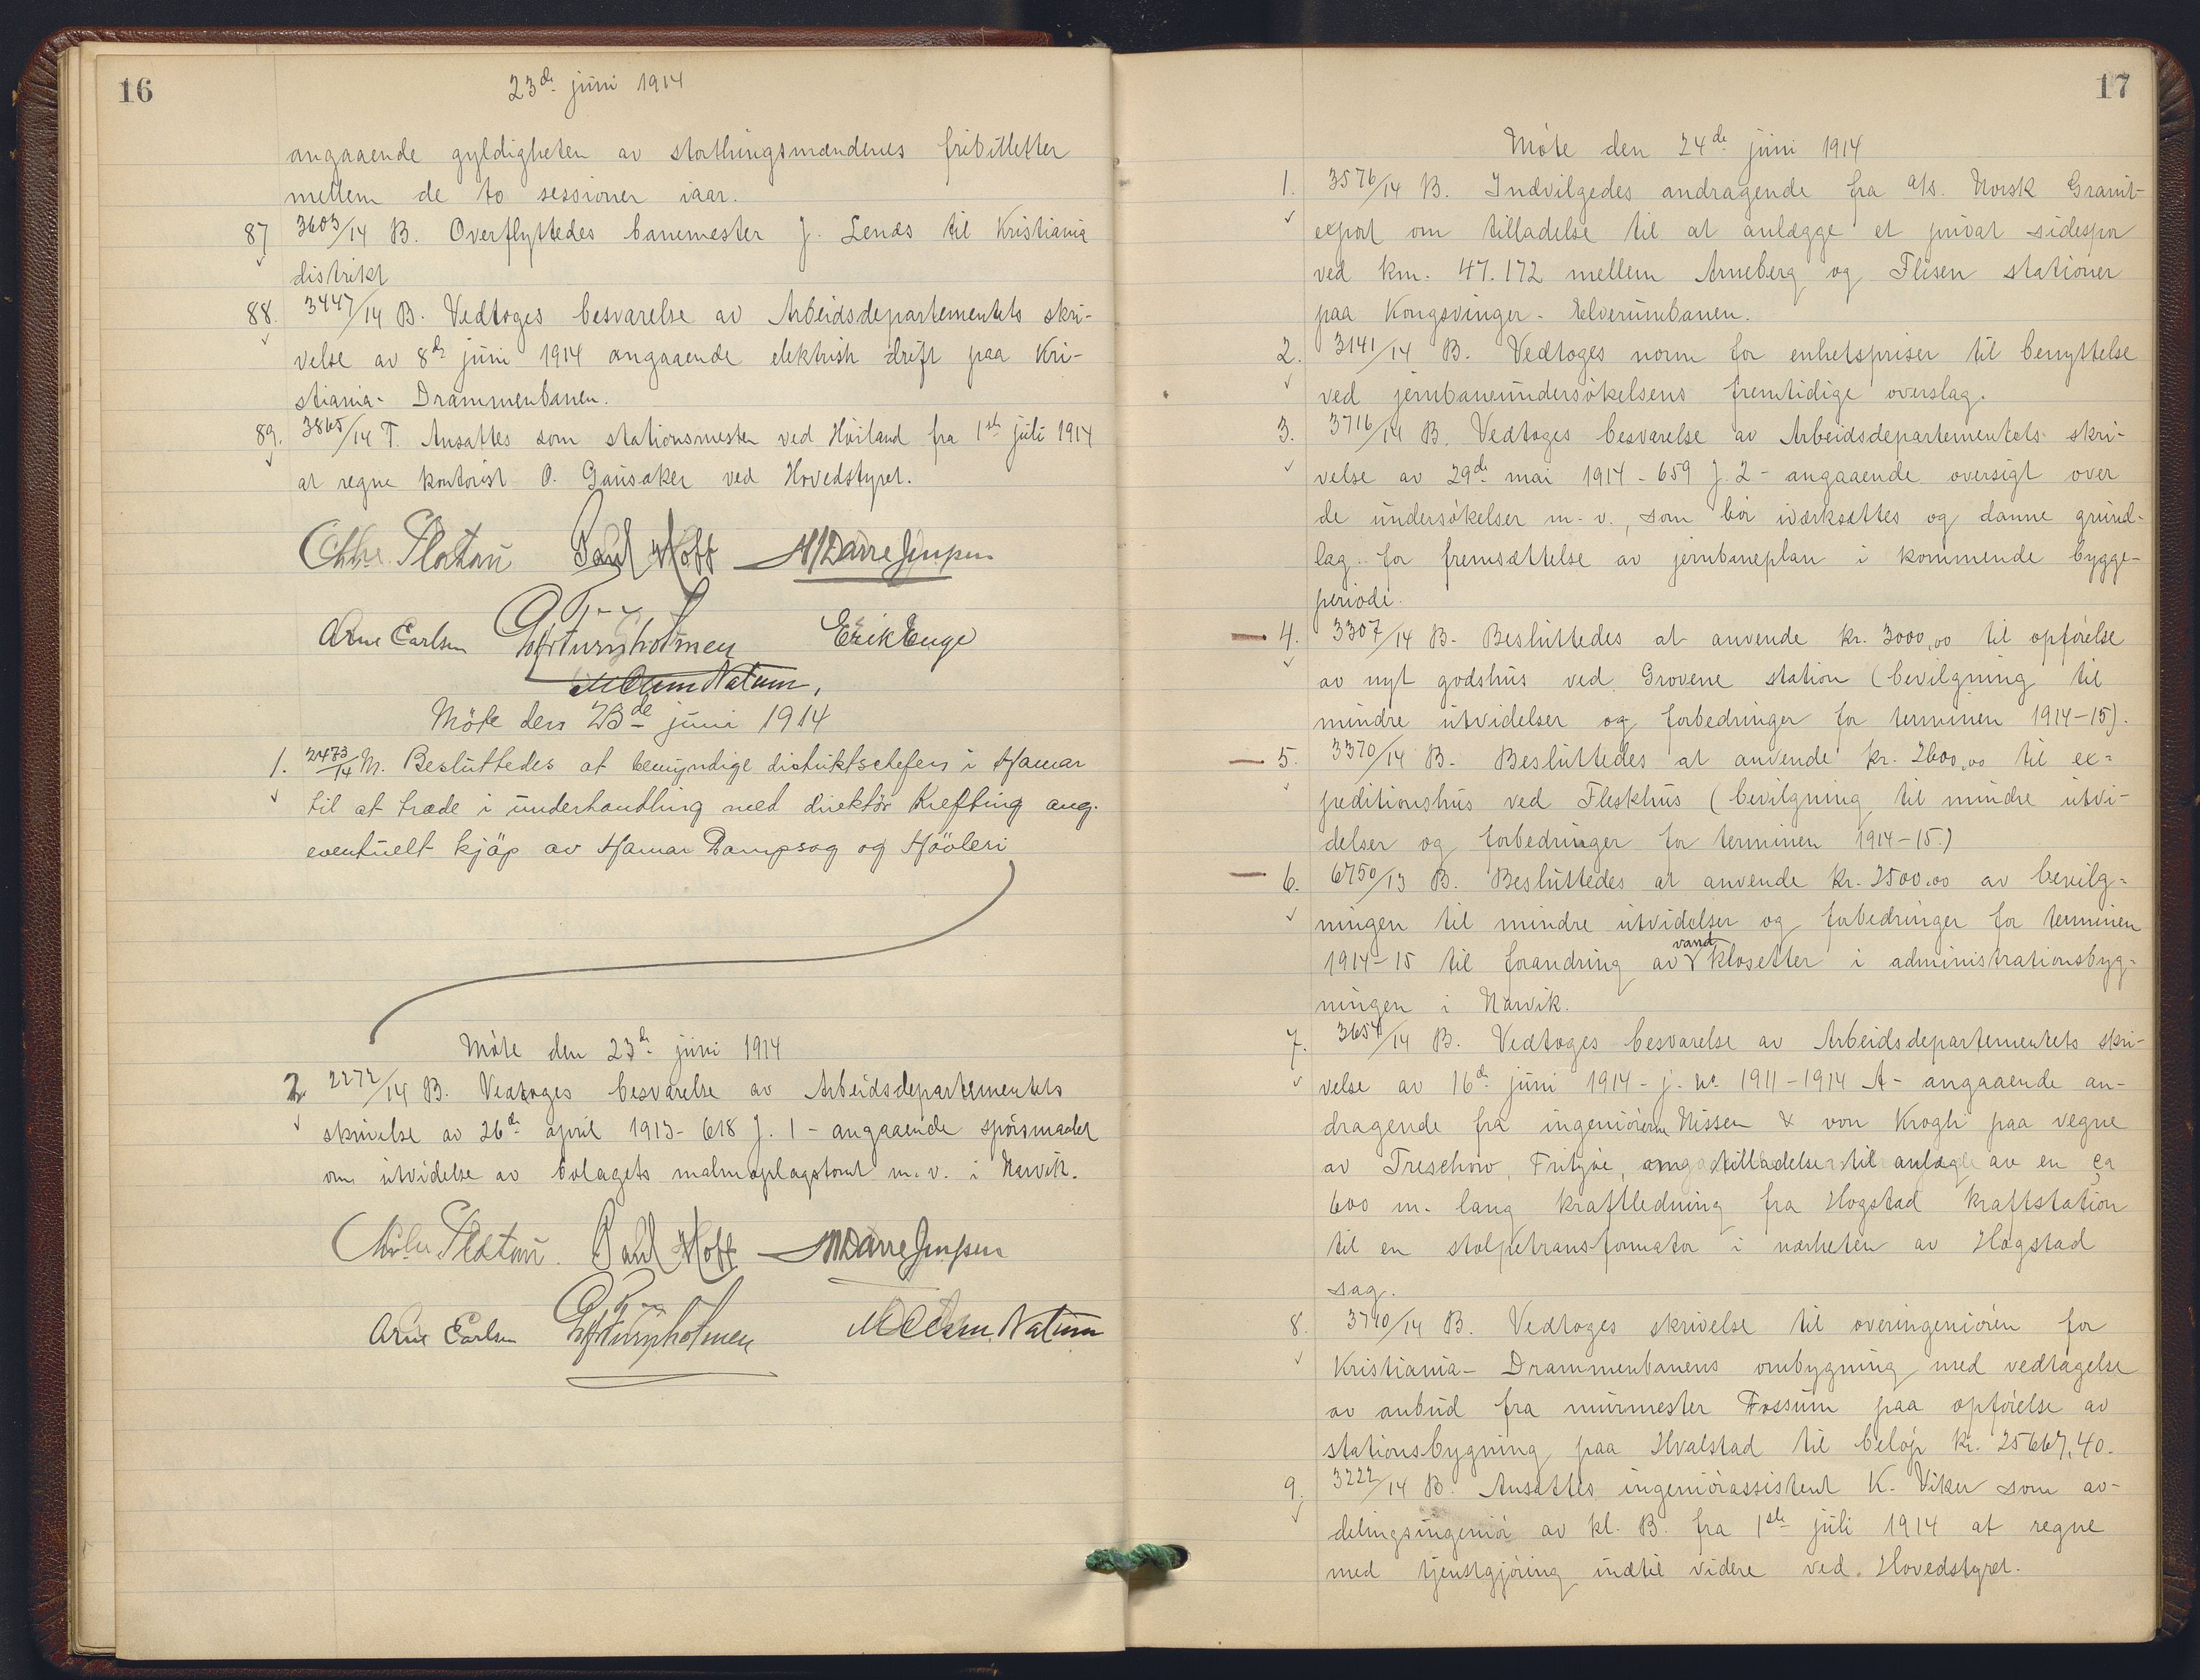 16
23de juni 1914
angaaende gyldigheten av storthingsmændenes fribilletter
mellem de to sessioner iaar.
87 3603/14 B. Overflyttedes banemester J. Lenæs til Kristiania
distrikt
88. 3447/14 B. Vedtoges besvarelse av Arbeidsdepartementets skri-
velse av 8de juni 1914 angaaende elektrisk drift paa Kri-
stiania- Drammenbanen.
89. 3865/14 T. Ansattes som stationsmester ved Höiland fra 1ste juli 1914
at regne kontorist O. Gausaker ved Hovedstyret.
Chr. Platou Paul Hoff Darre Jenssen
Arne Carlsen Sturzholmen Erik Enge
Natum,
Möte den 23de juni 1914
1. 2473/14 M. Besluttedes at bemyndige distriktschefen i Hamar
til at træde i underhandling med direktör Krefting ang.
eventuelt kjöp av Hamar Dampsag og Hövleri
Möte den 23de juni 1914
2 2272/14 B. Vedtoges besvarelse av Arbeidsdepartementets
skrivelse av 26de april 1913- 618 J. 1 - angaaende spörsmaalet
om utvidelse av bolagets malmoplagstomt m.v. i Narvik.
Platou. Paul Hoff Darre Jenssen
Arne Carlsen Natum
17
Möte den 24de juni 1914
1. 3576/14 B. Indvilgedes andragende fra a/s. Norsk Granit-
export om tilladelse til at anlægge et privat sidespor
ved km. 47.172 mellem Arneberg og Flisen stationer
paa Kongsvinger - Elverumbanen.
2. 3141/14 B. Vedtoges norm for enhetspriser til benyttelse
ved jernbaneundersökelsens fremtidige overslag.
3. 3716/14 B. Vedtoges besvarelse av Arbeidsdepartementets skri-
velse av 29de mai 1914 - 659 J. 2 - angaaende oversigt over
de undersökelser m.v., som bör iværksættes og danne grund-
lag for fremsættelse av jernbaneplan i kommende bygge-
periode.
4. 3307/14 B. Besluttedes at anvende kr. 3000,00 til opförelse
av nyt godshus ved Grovene station (bevilgning til
mindre utvidelser og forbedringer for terminen 1914-15).
5. 3370/14 B. Besluttedes at anvende kr. 2600,00 til ex-
peditionshus ved Fleskhus (bevilgning til mindre utvi-
delser og forbedringer for terminen 1914-15.)
6. 6750/13 B. Besluttedes at anvende kr. 2500.00 av bevilg-
ningen til mindre utvidelser og forbedringer for terminen
1914-15 til forandring av vandklosetter i administrationsbyg-
ningen i Narvik.
7. 3654/14 B. Vedtoges besvarelse av Arbeidsdepartementets skri-
velse av 16de juni 1914 - j. no 1911-1914 A - angaaende an-
dragende fra ingeniörerne Nissen & von Krogh paa vegne
av Treschow, Fritzöe, ang. tilladelse til anlæg av en ca
600 m. lang kraftledning fra Hogstad kraftstation
til en stolpetransformator i nærheten av Hogstad
sag.
8. 3740/14 B. Vedtoges skrivelse til overingeniören for
Kristiania- Drammenbanens ombygning med vedtagelse
av anbud fra murmester Fossum paa opförelse av
stationsbygning paa Hvalstad til belöp kr. 25667,40.
9. 3222/14 B. Ansattes ingeniörassistent K. Viker som av-
delingsingeniör av kl. B. fra 1ste juli 1914 at regne
med tjenstgjöring indtil videre ved Hovedstyret.